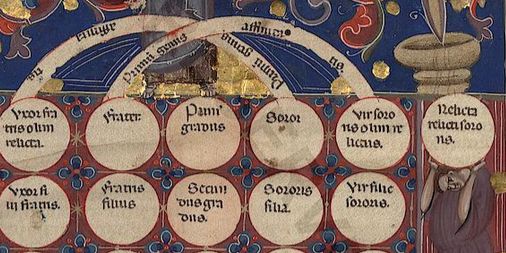 affini
Vxor fra
tris olim
relicta.
Frater
Primꝰ
gradus
Soror
Vir soro
ris olim re
lictus.
Relicta
relicti soro
ris.
Vxor fi
lii fratris.
Fratris
filius
Secun
dus gra
dus.
Sororis
filia.
Vir filie
sororis.